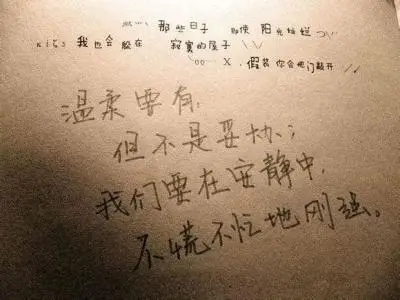 那些日子 即使 阳光灿烂
我也会躲在 寂寞的屋子
X．假装你会他门敲开
温柔要有．
但不是妥协；
我们要在安静中，
不慌不忙地刚强。